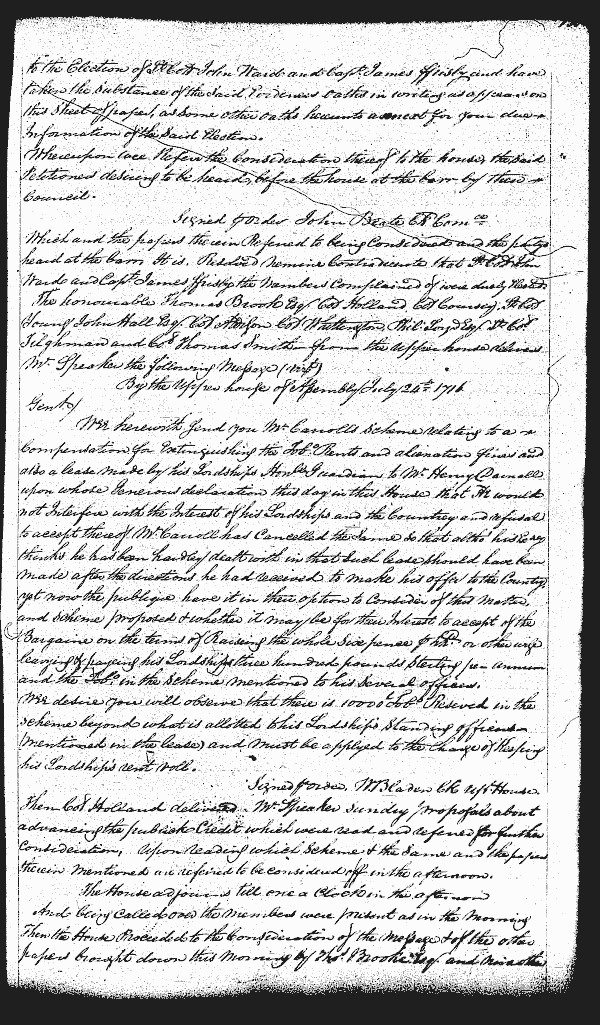 to the Election of Lt Coll John Ward and Capt. James Frisby and have
taken the Substance of the Said Evidences oaths in writing as appears on
this Sheet of paper, as Some other oaths hereunto annext for your due
Information of the Said Election.
Whereupon wee Refere the Consideration thereof to the house, the said
Petitioners desiring to be heard before the house at the barr by their
Council.
Signed p order John Beale Cl Com
Which and the papers therein Referred to being Considered and the partys
heard at the barr. It is Resolved Nemine Contradicente that Lt Coll John
Ward and Capt James Frisby the Members Complained of were duely Elected
The honourable Thomas Brook Esq Coll Holland, Coll Coursey, Lt Coll
Young John Hall Esq Coll Addison Coll Whittington, Phil: Loyd Esq Lt Coll
Tilghman and Coll Thomas Smith from the Upper house delivers
Mr Speaker the following Message (vizt)
By the Upper house of Assembly July 24th 1716
Gent
Wee herewith Send you Mr Carrolls Scheme relating to a
Compensation for Extinguishing the Tobo Rents and alienation fines and
also a lease made by his Lordships Honble Guardian to Mr Henry Darnall
upon whose Generous declaration this day in this House that He would
not Interfere with the Interest of his Lordships and the Country and refusal
to accept thereof Mr Carroll has Cancelled the Same so that altho his
thinks he has been hardley dealt with in that Such lease should have been
made after the directions he had received to make his offer to the Country,
yet now the publique have it in their option to Consider of this Matter,
and Scheme proposed & whether it may be for their Interest to accept of the
Bargaine on the terms of Raising the whole Six pence p hhd or other wise
leaving & paying his Lordship three hundred pounds Sterling per annum
and the Tobo in the Scheme mentioned to his Several officers.
Wee desire you will observe that there is 10000 Tobo Reserved in the
Scheme beyond what is allotted to his Lordships Standing officers
(mentioned in the lease) and must be applyed to the Charge of Keeping
his Lordships rent roll.
Signed p order. W Bladen Clk upr House.
Then Coll Holland delivered Mr Speaker Sundry proposals about
advancing the publick Credit which were read and referred for further
Consideration, Upon reading which Scheme & the Same and the papers
therein mentioned are referred to be considered off in the afternoon.
The House adjourns till one a Clock in the afternoon
And being called over the members were present as in the Morning
Then the House Proceeded to the Consideration of the Message & of the other
papers brought down this Morning by Thos Brooke Esq and nine other